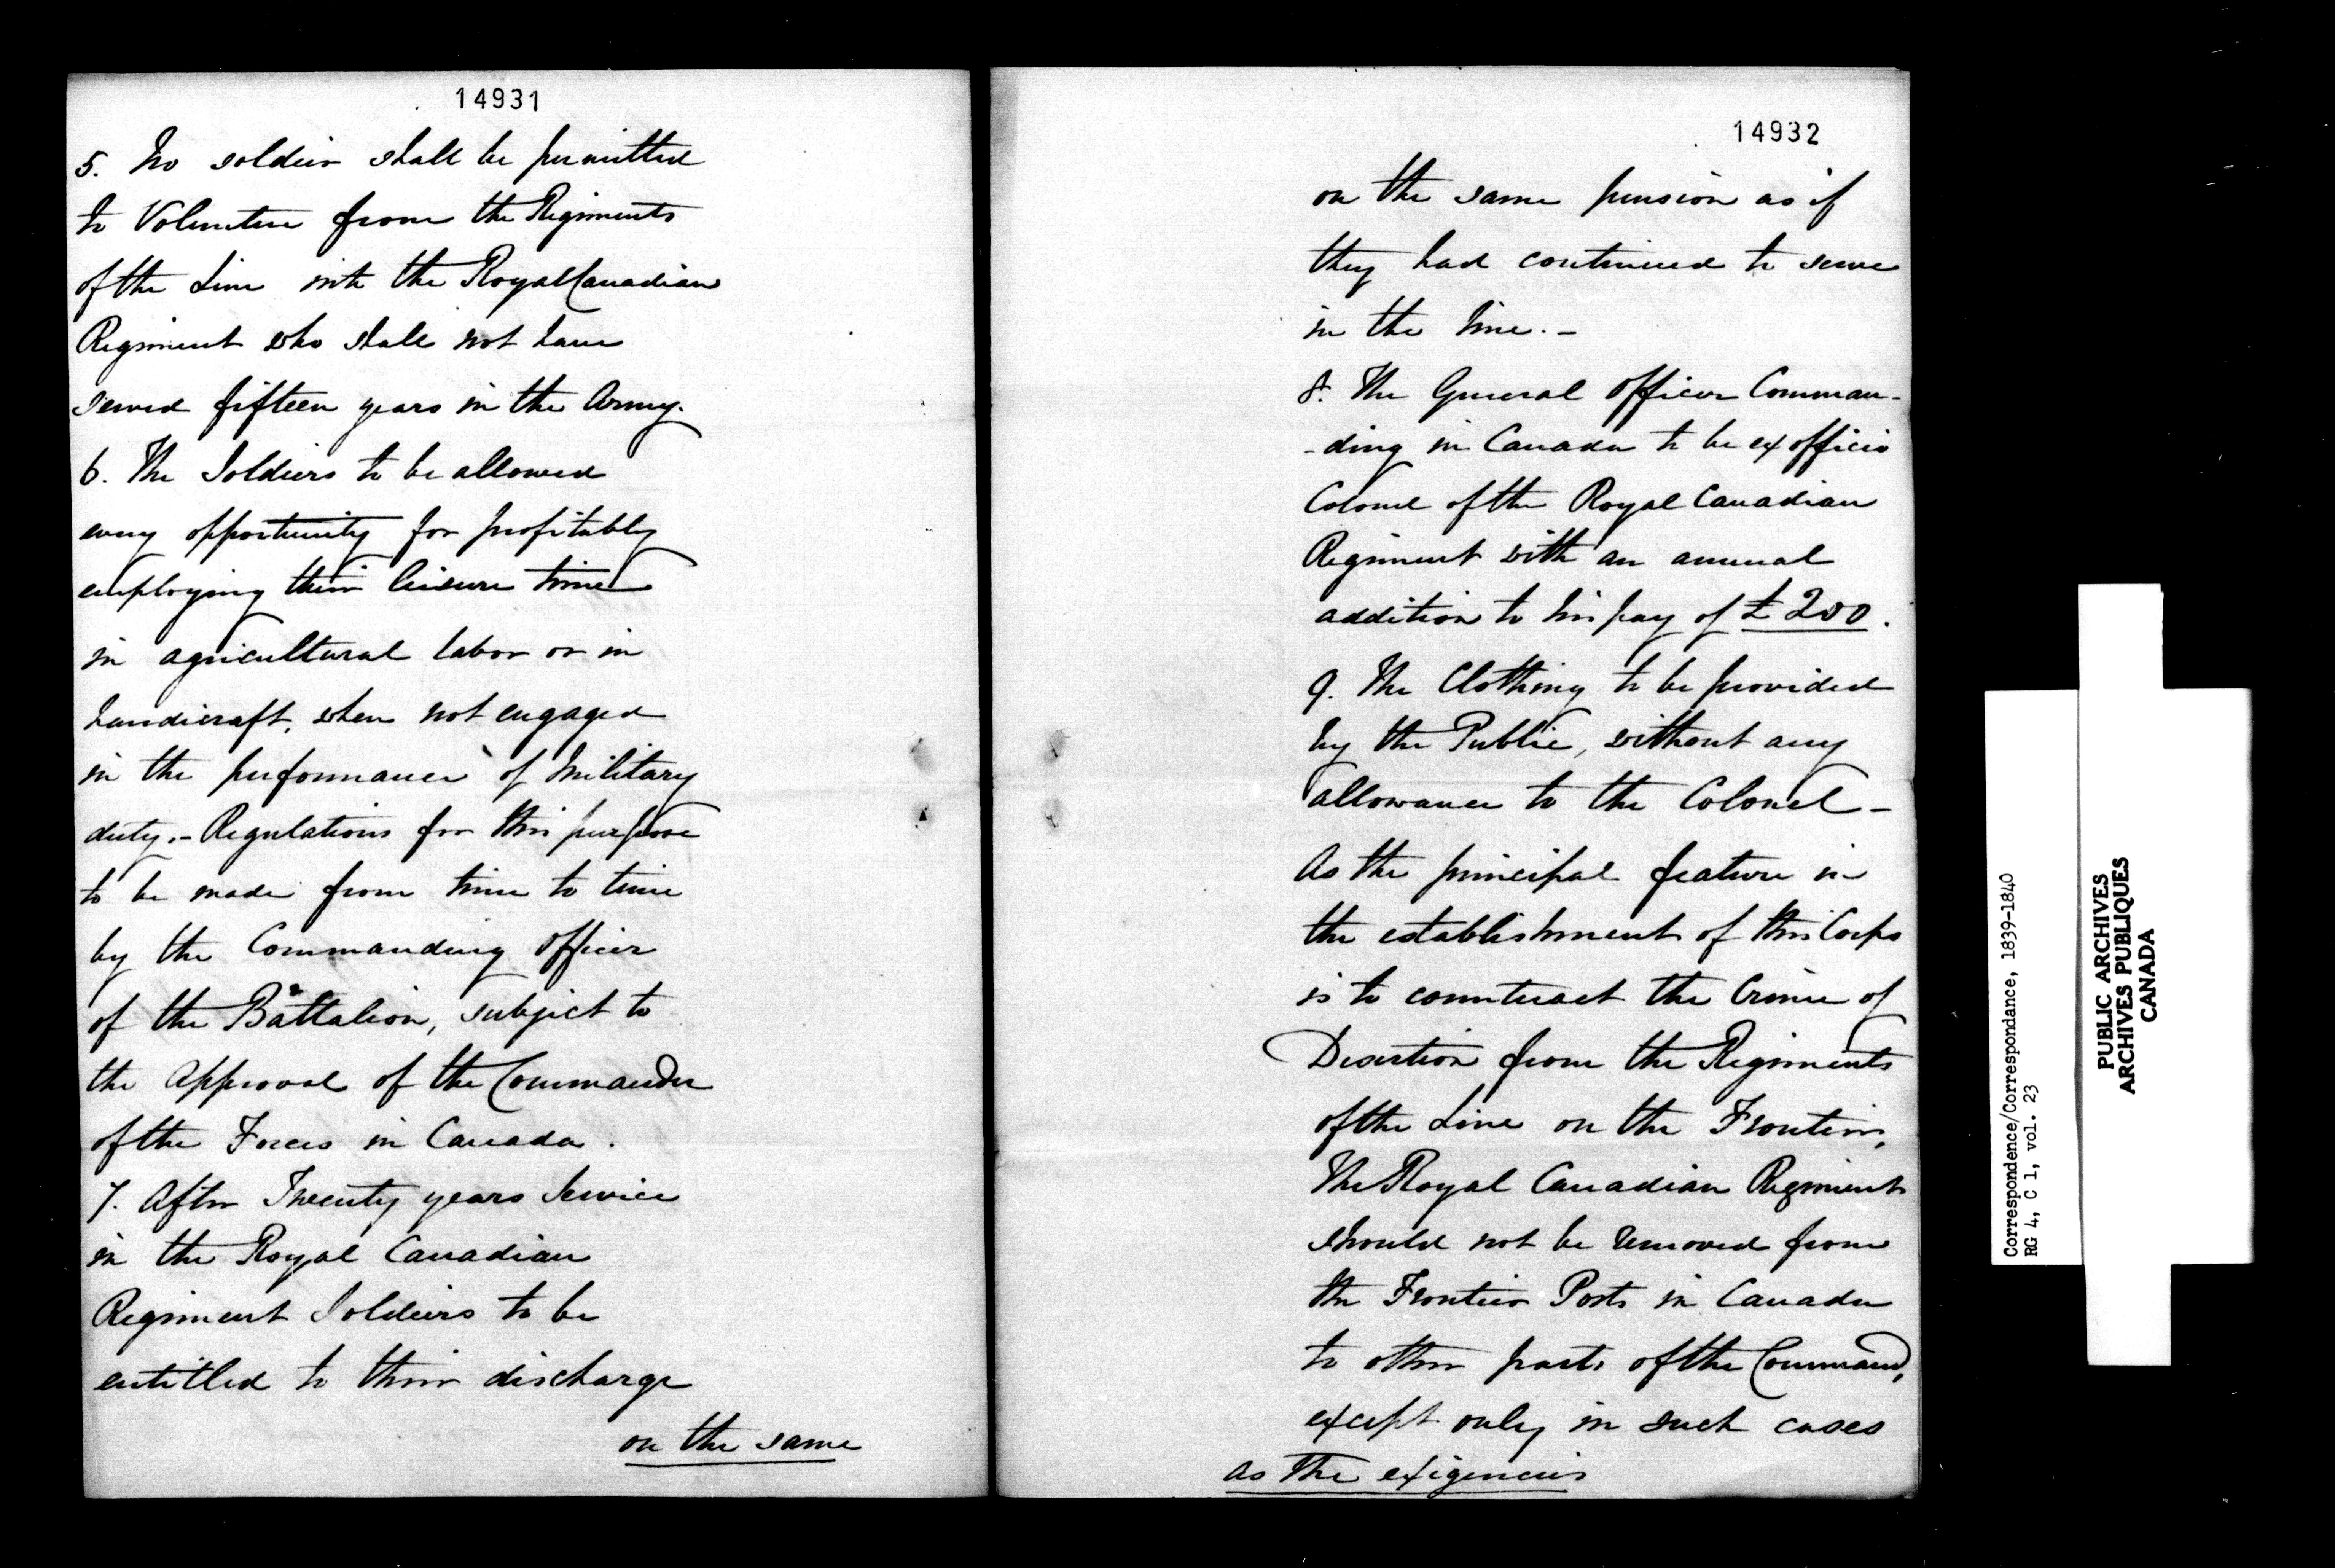 14931
5. No soldier shall be permitted
to Volunteer from the Regiments
of the Line into the Royal Canadian
Regiment who shall not have
served fifteen years in the Army.
6. The Soldiers to be allowed
every opportunity for profitably
employing their leisure time
in agricultural labor or in
handicraft, when not engaged
in the performance of Military
duty. - Regulations for this purpose
to be made from time to time
by the Commanding Officer
of the Battalion, subject to
the Approval of the Commander
of the Forces in Canada.
7. After Twenty years Service
in the Royal Canadian
Regiment Soldiers to be
entitled to their discharge
on the same
14932
on the same pension as if
they had continued to serve
in the line. -
8. The General Officer Comman-
-ding in Canada to be ex officio
Colonel of the Royal Canadian
Regiment with an annual
addition to his pay of £200.
9. The Clothing to be provided
by the Public, without any
allowance to the Colonel -
As the principal feature in
the establishment of this Corps
is to counteract the Crime of
Desertion from the Regiments
of the Line on the Frontier,
The Royal Canadian Regiment
should not be removed from
the Frontier Posts in Canada
to other parts of the Command,
except only in such cases
as the exigencies
Correspondence/Correspondance, 1839-1840
RG 4, C 1, vol. 23
PUBLIC ARCHIVES
ARCHIVES PUBLIQUES
CANADA